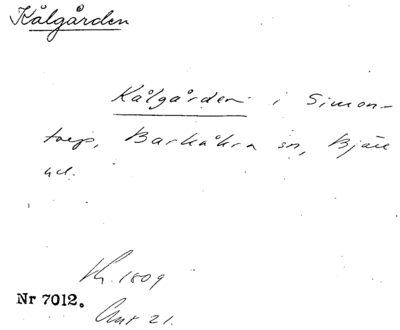 Kålgården
Kålgården i Simon-
torp, Barkåkra sn, Bjäre
hd.
Kh. 1809
Nr 7012.
Ant 21.